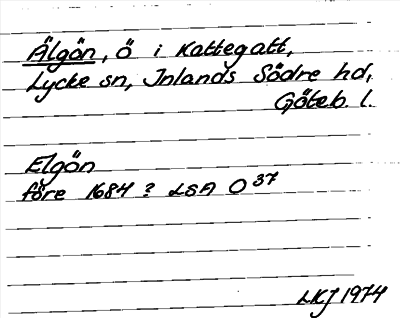 Älgön, ö i Kattegatt,
Lycke sn, Inlands Södre hd,
Göteb. l.
Elgön
före 1684? LSA O 37
LKJ 1974